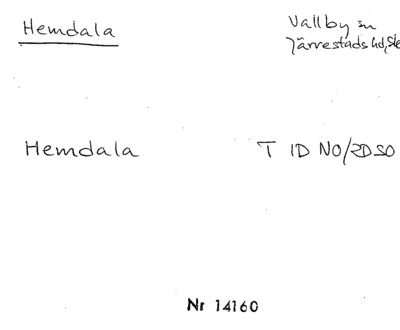 Hemdala
Vallby sn
Järrestads hd, Sk
Hemdala
T 1D NO/2D SO
Nr 14160